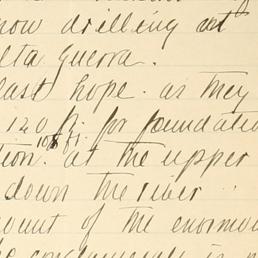 now drilling at
lta Guerra.
last hope. as they
120 ft. for foundatio
108 ft.
tion. at the upper
down the river
ount of the enormou